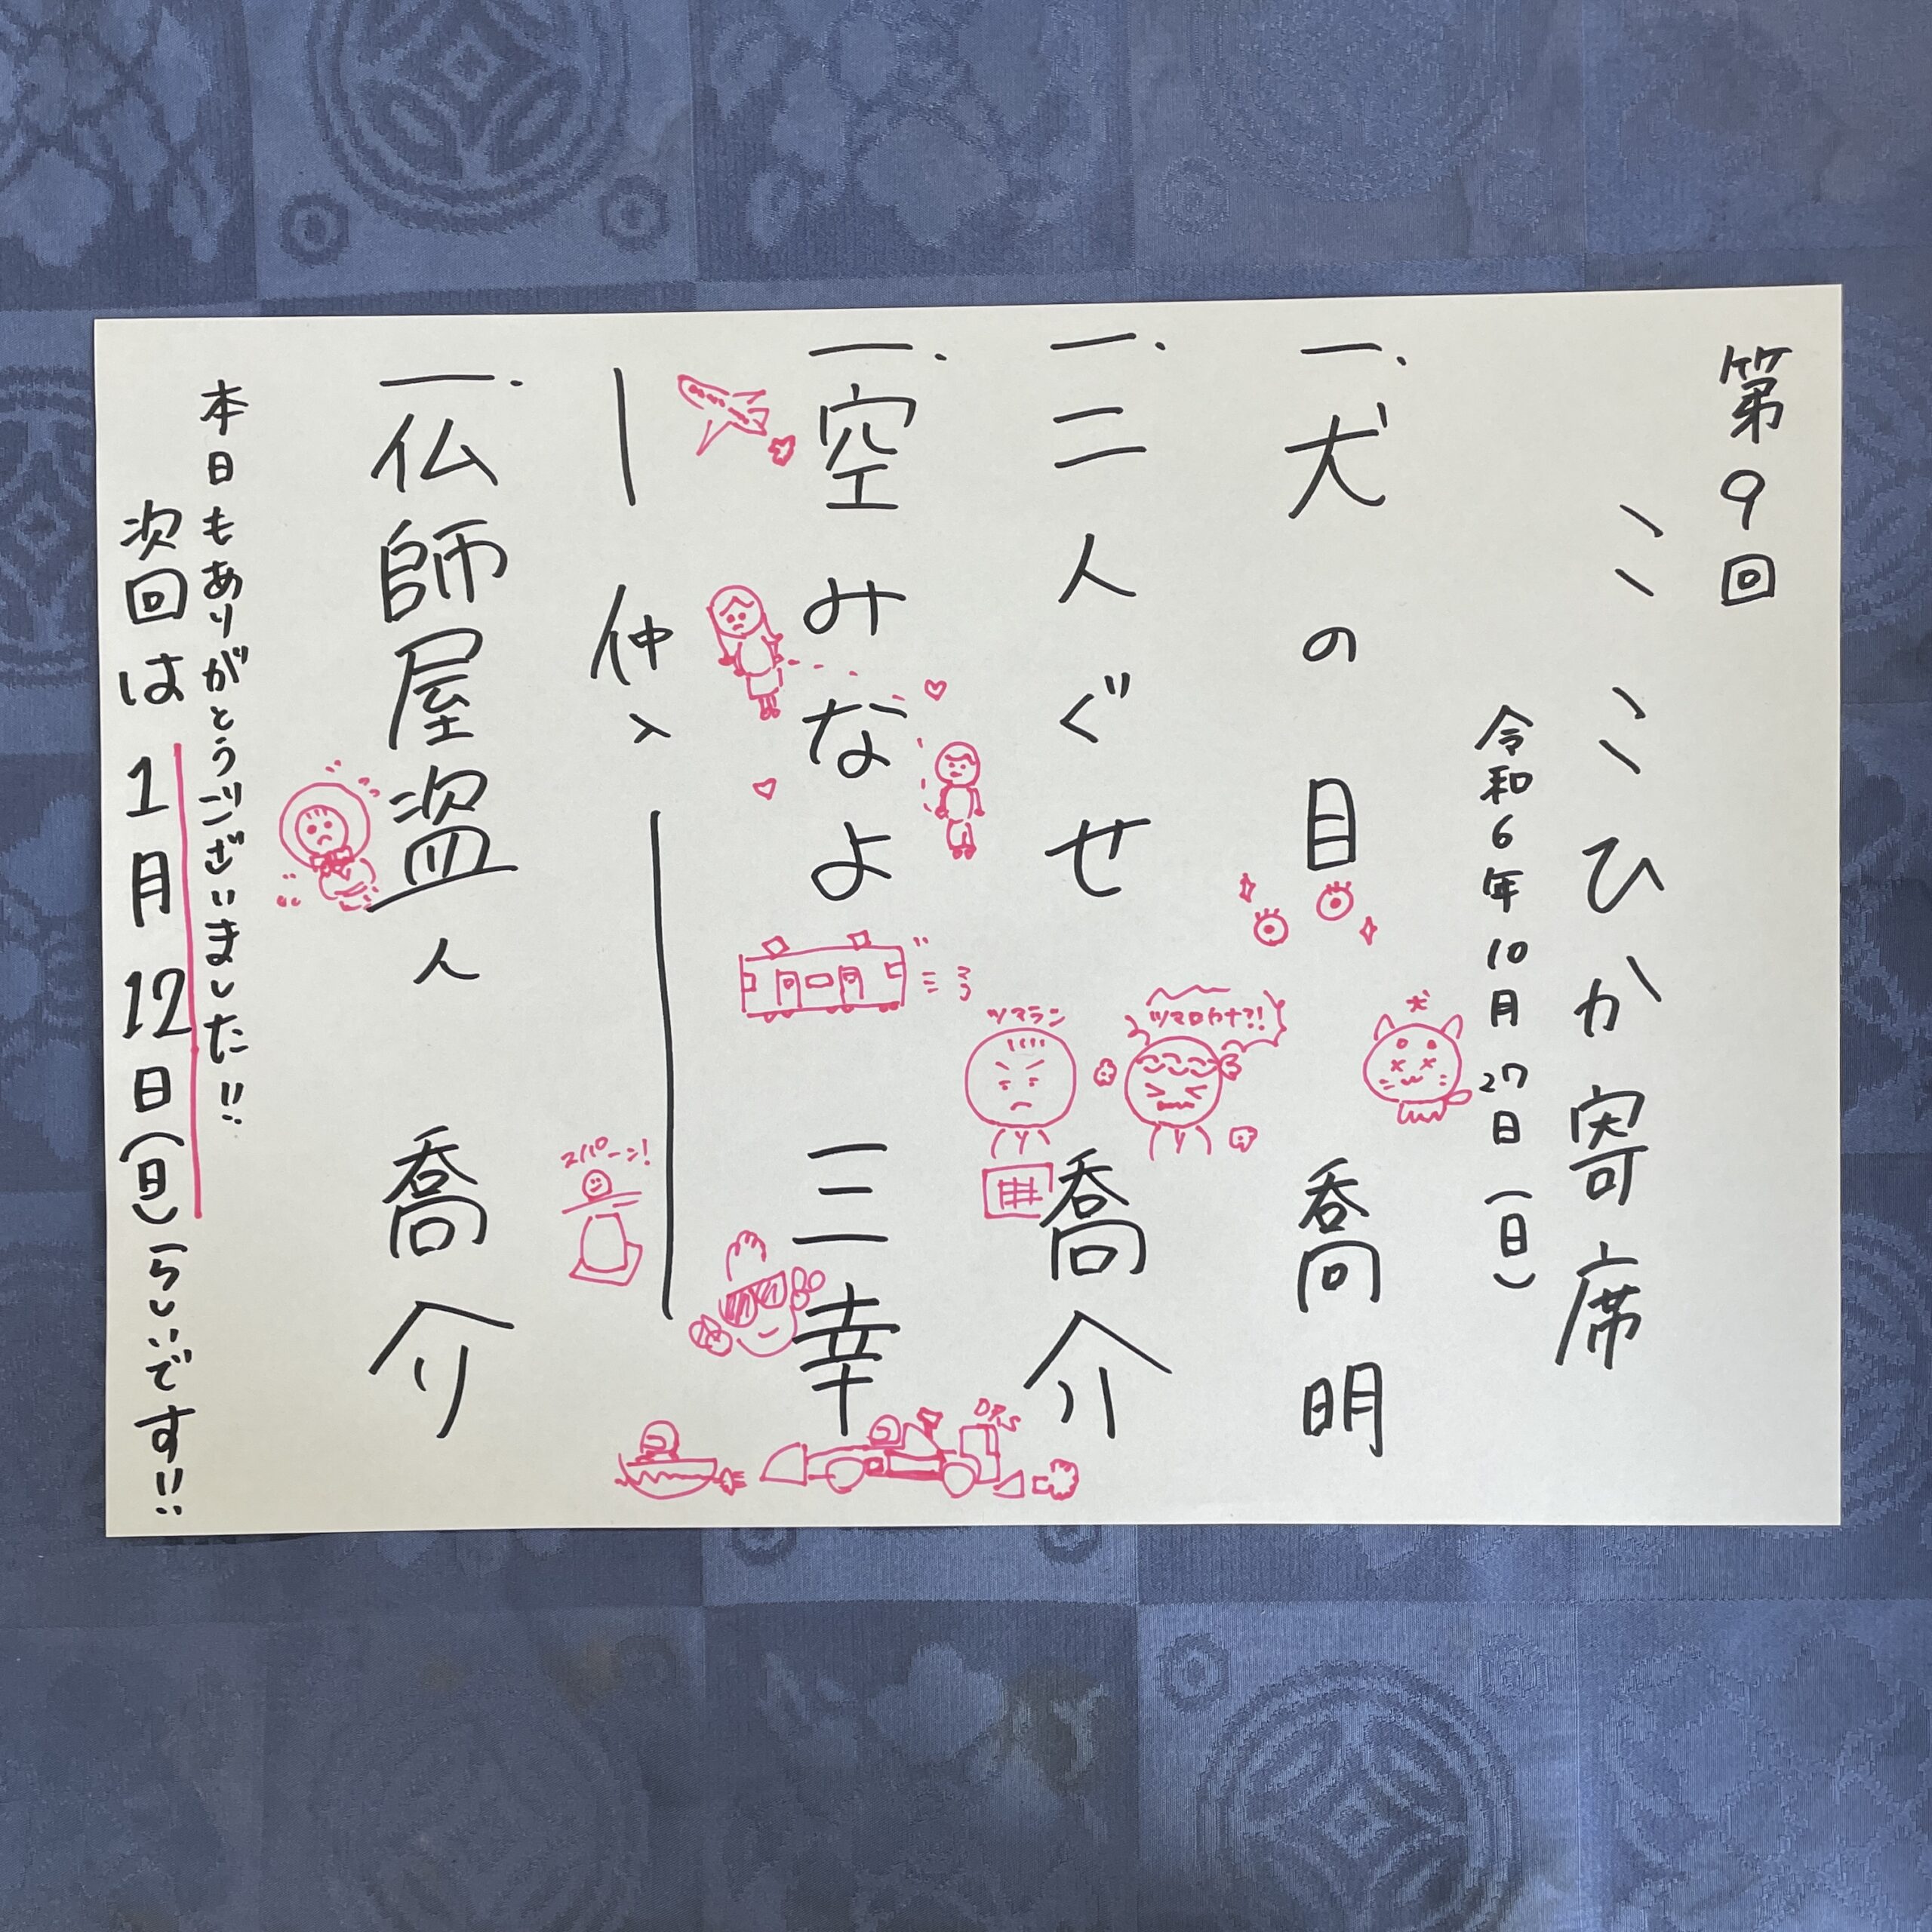 第9回
ここひか寄席
令和6年10月27日(日)
一.犬の目 喬明
犬
一.二人ぐせ 喬介
ツマロカナ?!
ツマラン
一.空みなよ 三幸
DRS
仲入
スパーン!
一.仏師屋盗人 喬介
本日もありがとうございました!!
次回は1月12日(日)らしいです!!